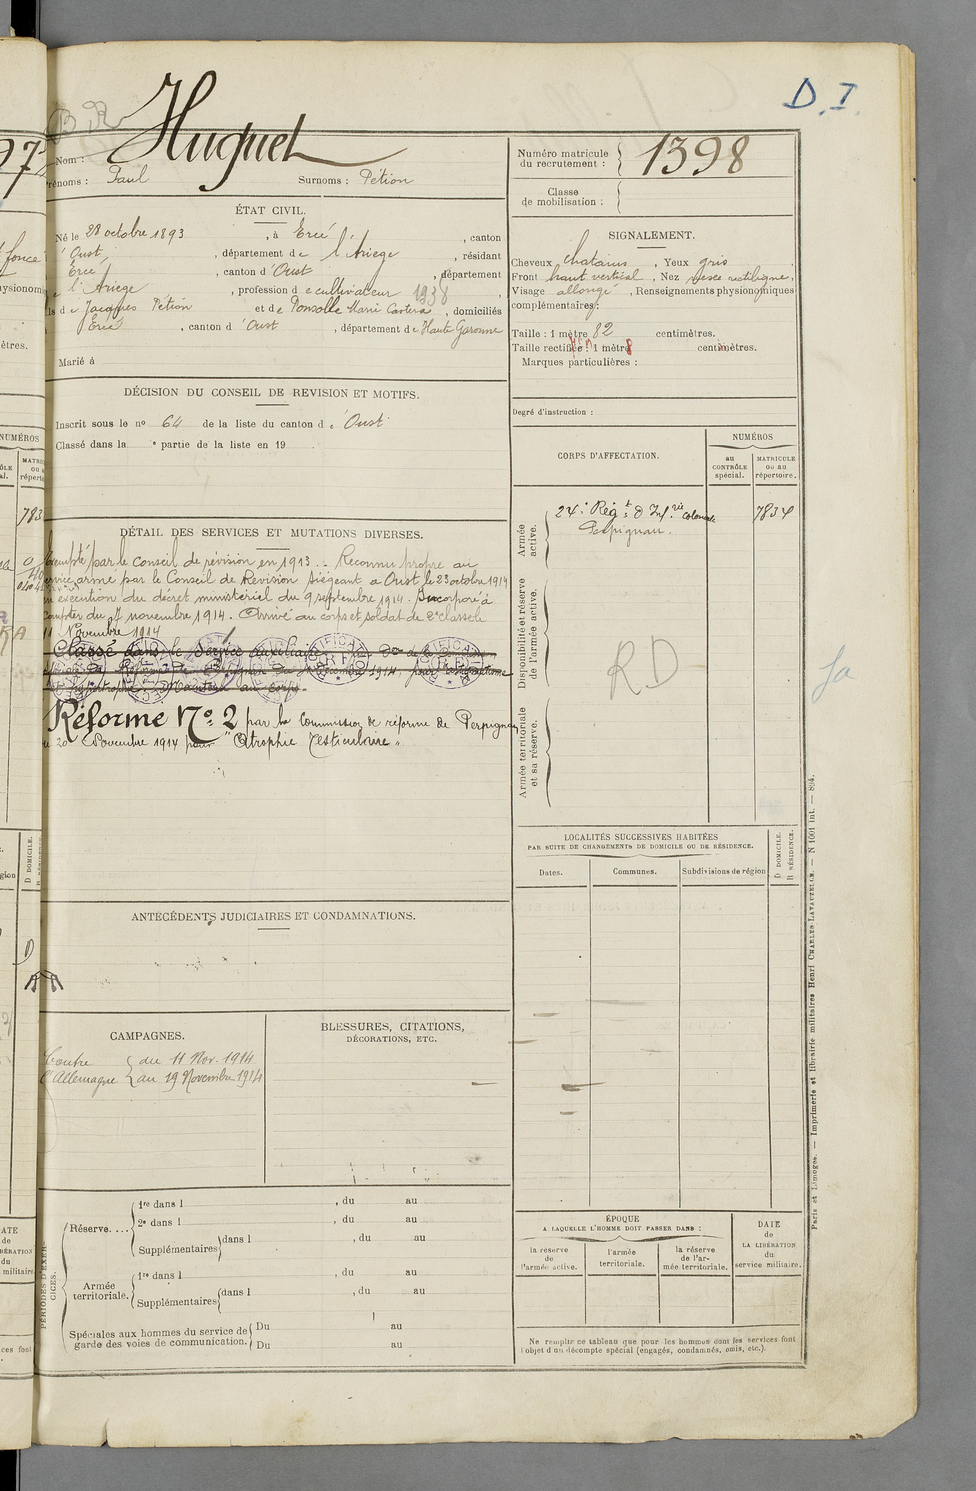 D.I.
B R
Nom : Huguet
Prénoms : Paul Surnoms : Pétion
Numéro matricule du recrutement : 1398
Classe de mobilisation :
ÉTAT CIVIL.
Né le 28 octobre 1893, à Ercé, canton
d'Oust, département de l'Ariège, résidant
Ercé, canton d'Oust, département
de l'Ariège, profession de cultivateur 1938
fils de Jacques Pétion et de Ponsolle Marie, domiciliés
Ercé, canton d'Oust, département de Haute Garonne
Marié à
SIGNALEMENT.
Cheveux chatains, Yeux gris,
Front haut vertical, Nez rectiligne,
Visage allongé, Renseignements physionomiques
complémentaires :
Taille : 1 mètre 82 centimètres.
Taille rectifiée : 1 mètre centimètres.
Marques particulières :
Degré d'instruction :
DÉCISION DU CONSEIL DE REVISION ET MOTIFS.
Inscrit sous le no 64 de la liste du canton d'Oust
Classé dans la e partie de la liste en 19
CORPS D'AFFECTATION.
NUMÉROS
au CONTRÔLE spécial.
MATRICULE ou au répertoire.
Armée active.
24e Régt d'Infrie coloniale
Perpignan.
7834
Disponibilité et réserve de l'armée active.
RD
Armée territoriale et sa réserve.
DÉTAIL DES SERVICES ET MUTATIONS DIVERSES.
Exempté par le Conseil de révision en 1913. Reconnu propre au
service armé par le Conseil de Revision siégeant a Oust le 23 octobre 1914
en exécution du décret ministériel du 9 septembre 1914. Incorporé à
compter du novembre 1914. Arrivé au corps et soldat de 2e classe le
11 Novembre 1914
Classé dans le Service auxiliaire
Maintenu au corps.
Réforme No 2 par la Commission de réforme de Perpignan
20 Novembre 1914 pour "Atrophie testiculaire"
LOCALITÉS SUCCESSIVES HABITÉES
PAR SUITE DE CHANGEMENTS DE DOMICILE OU DE RÉSIDENCE.
Dates.
Communes.
Subdivisions de région
D DOMICILE.
R RÉSIDENCE.
ANTÉCÉDENTS JUDICIAIRES ET CONDAMNATIONS.
CAMPAGNES.
Contre l'Allemagne { du 11 Nov. 1914
au 19 Novembre 1914
BLESSURES, CITATIONS,
DÉCORATIONS, ETC.
PÉRIODES D'EXERCICES.
Réserve....
1re dans l , du au
2e dans l , du au
Supplémentaires dans l , du au
Armée territoriale.
1re dans l , du au
Supplémentaires dans l , du au
Spéciales aux hommes du service de garde des voies de communication.
Du au
Du au
ÉPOQUE
A LAQUELLE L'HOMME DOIT PASSER DANS :
la réserve de l'armée active.
l'armée territoriale.
la réserve de l'armée territoriale.
DATE de LA LIBÉRATION du service militaire.
Ne remplir ce tableau que pour les hommes dont les services font
l'objet d'un décompte spécial (engagés, condamnés, omis, etc.).
Paris et Limoges. — Imprimerie et librairie militaires Henri CHARLES-LAVAUZELLE. — N 1001 int. — 894.